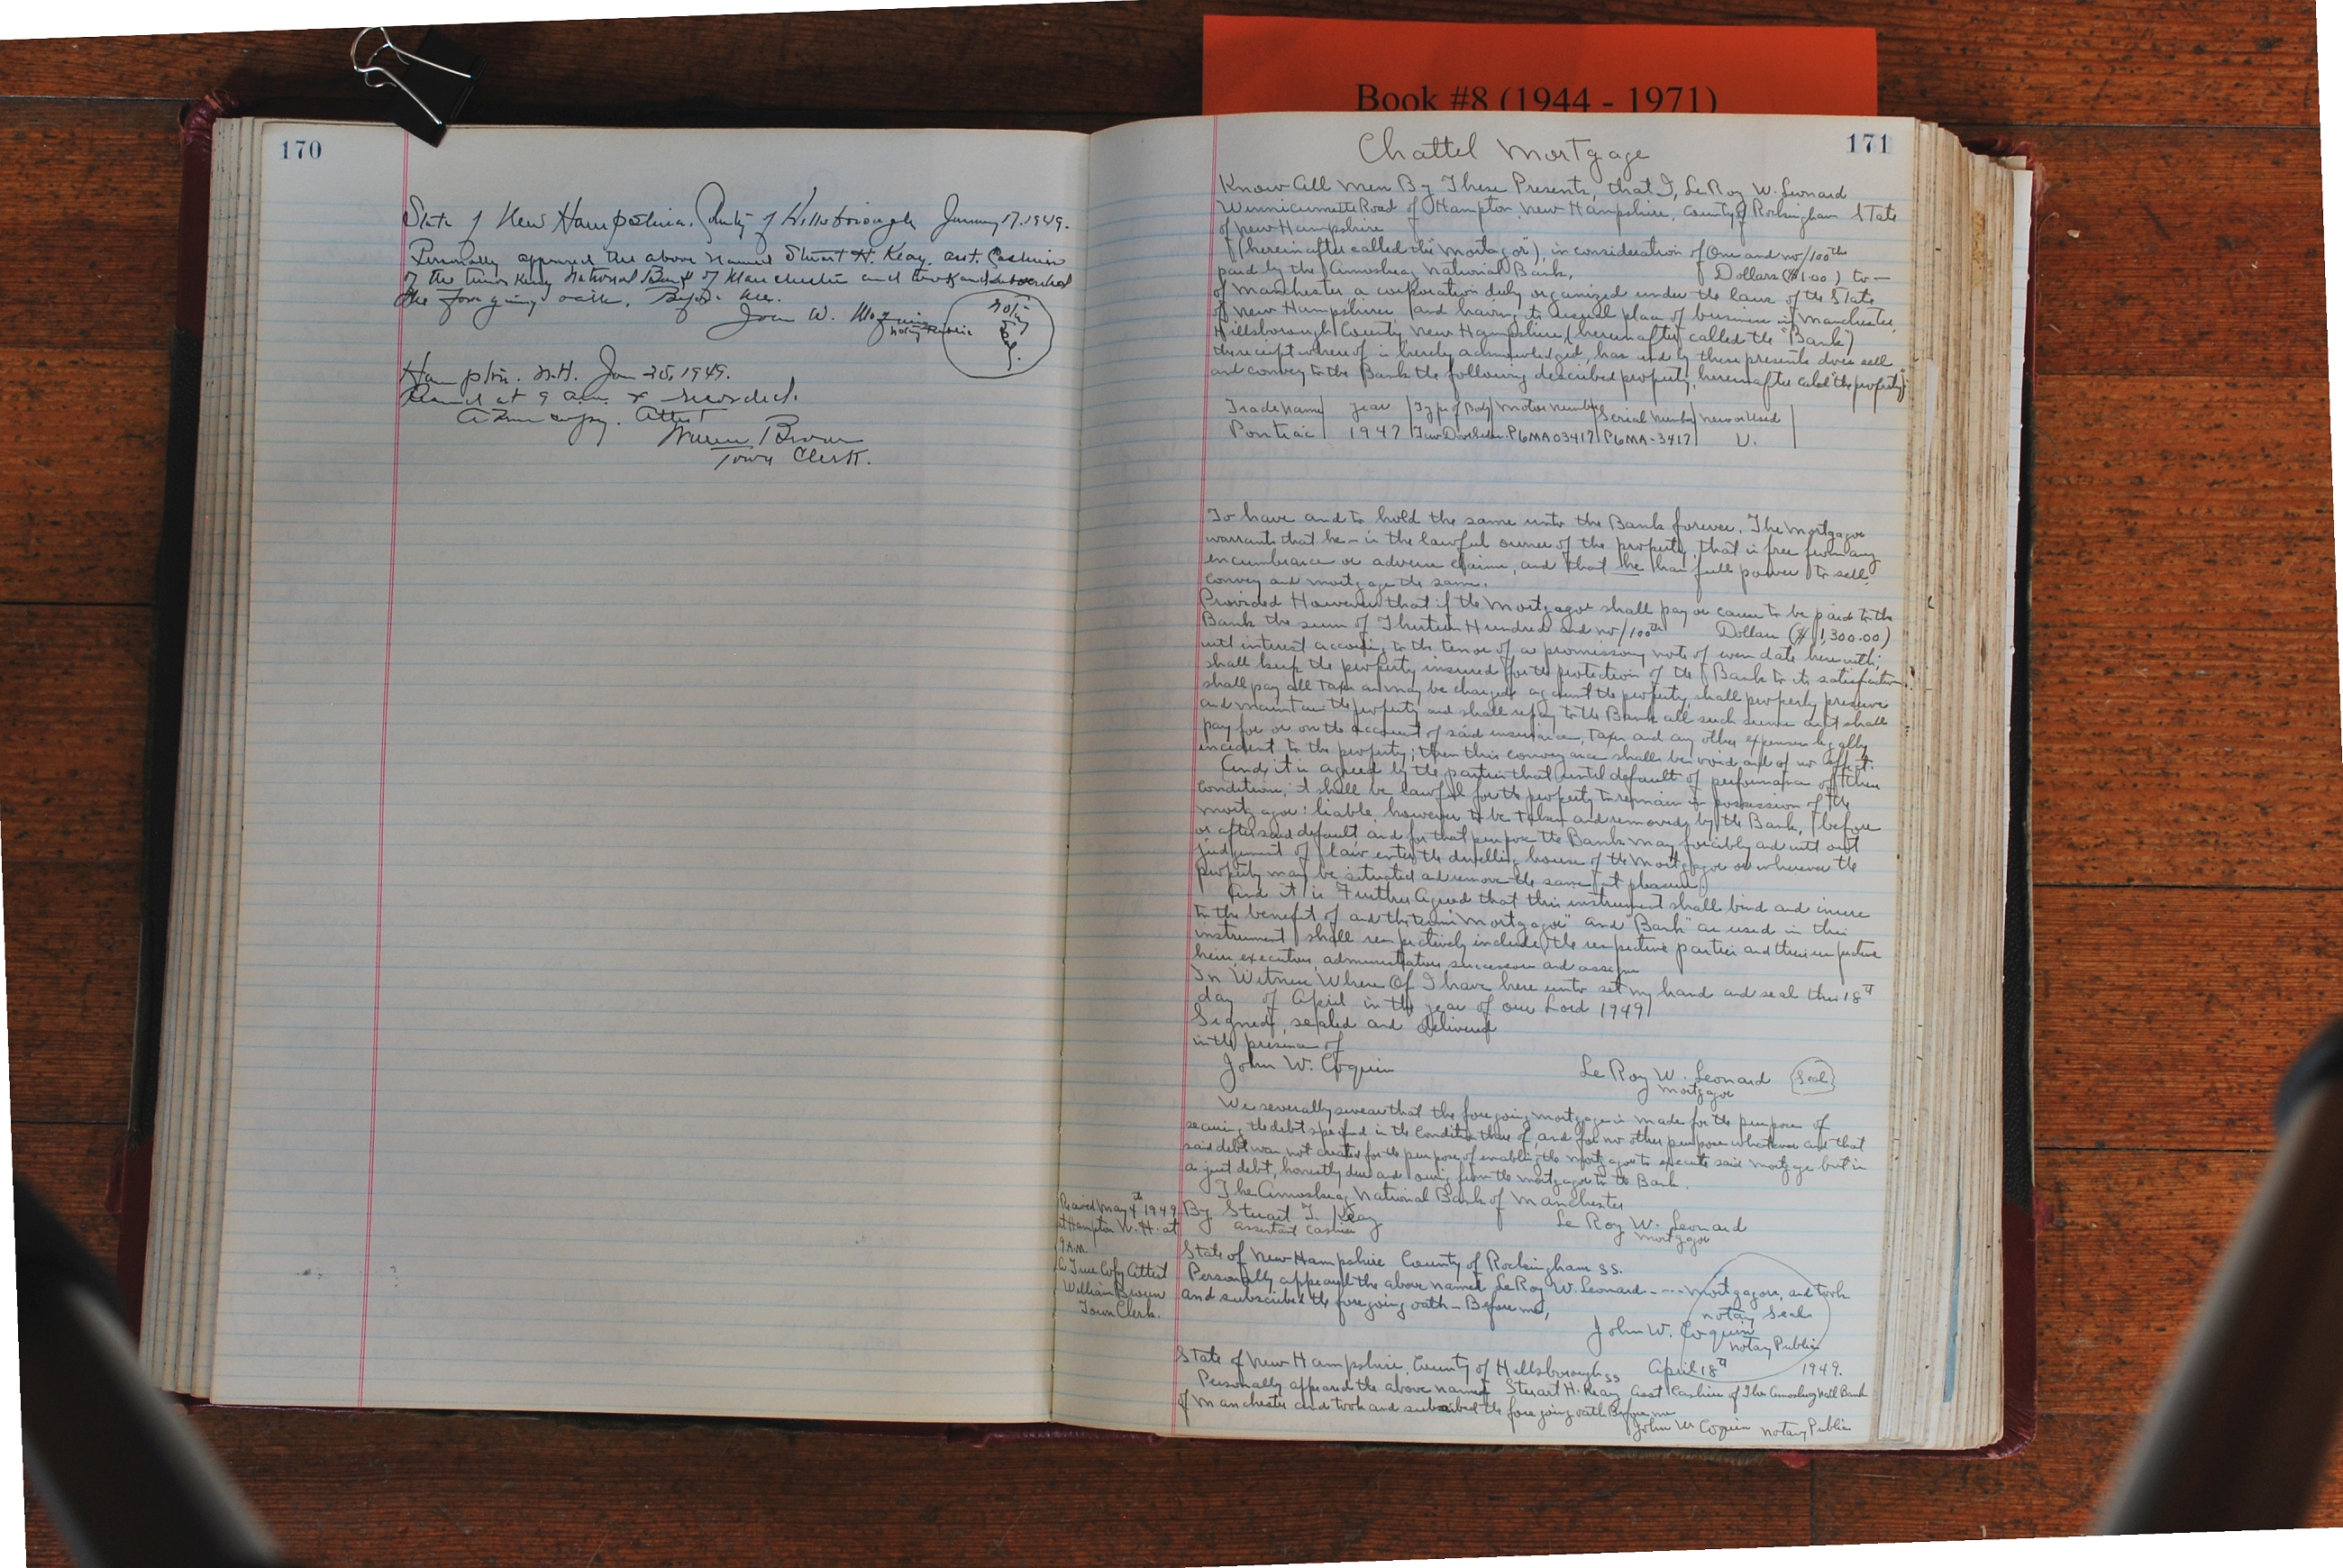 Book #8 (1944 - 1971)
170
State of New Hampshire. County of Hillsborough January 17, 1949.
Personally appeared the above named Stuart H. Keay. asst. Cashier
of the Amoskeag National Bank of Manchester and took and subscribed
the foregoing oath. Before me.
John W.
Notary Public
Notary
Hampton. N.H. Jan 25, 1949.
Received at 9 a.m. & recorded.
A True copy. Attest
William Brown
Town Clerk.
171
Chattel Mortgage
Know All Men By These Presents, that I, LeRoy W. Leonard
Winnicumette Road of Hampton, New Hampshire, County of Rockingham State
of New Hampshire
(hereinafter called the "Mortagor"), in consideration of One and no/100ths
paid by the Amoskeag National Bank, Dollars ($1.00) to —
of Manchester a corporation duly organized under the laws of the State
of New Hampshire and having its usual place of business in Manchester,
Hillsborough County, New Hampshire (hereinafter called the "Bank")
the receipt where of is hereby acknowledged, has and by these presents does sell
and convey to the Bank the following described property, hereinafter called "the property"
Trade Name Year Type of Body Motor Number Serial Number New or Used
Pontiac 1947 P6MA03417 P6MA-3417 U.
To have and to hold the same unto the Bank forever. The Mortgagor
warrants that he – is the lawful owner of the property, that is free from any
encumbrance or adverse claims, and that he has full power to sell
convey and mortgage the same.
Provided However that if the Mortgagor shall pay or cause to be paid to the
Bank the sum of Thirteen Hundred and no/100ths Dollars ($1,300.00)
with interest according to the tenor of a promissory note of even date here with,
shall keep the property insured for the protection of the Bank to its satisfaction
shall pay all taxes as may be charged against the property, shall properly preserve
and maintain the property and shall repay to the Bank all such sums as it shall
pay for or on the account of said insurance, taxes and any other expenses legally
incident to the property; then this conveyance shall be void and of no effect.
And it is agreed by the parties that until default of performance of these
conditions, it shall be lawful for the property to remain in possession of the
mortgagor: liable, however to be taken and removed by the Bank, before
or after said default and for that purpose the Bank may forcibly and with out
judgement of law enter the dwelling house of the Mortgagor or wherever the
property may be situated and remove the same at pleasure.
And it is Further Agreed that this instrument shall bind and inure
to the benefit of and the term "Mortgagor" and "Bank" as used in this
instrument shall respectively include the respective parties and their respective
heirs, executors, administrators successors and assigns
In Witness Where Of I have here unto set my hand and seal this 18th
day of April in the year of our Lord 1949
Signed, sealed and delivered
in the presence of
John W. Coquin LeRoy W. Leonard Seal
Mortgagor
We severally swear that the foregoing mortgage is made for the purpose of
securing the debt specified in the Condition there of, and for no other purpose whatever and that
said debt was not created for the purpose of enabling the mortgagor to execute said mortgage but is
a just debt, honestly due and owing from the mortgagor to the Bank.
The Amoskeag National Bank of Manchester
By Stuart H. Keay LeRoy W. Leonard
Assistant Cashier Mortgagor
Received May 4th 1949
at Hampton N.H. at
9 A.M.
A True Copy Attest
William Brown
Town Clerk.
State of New Hampshire County of Rockingham SS.
Personally appeared the above named LeRoy W. Leonard - - - Mortgagors, and took
and subscribed the foregoing oath – Before me,
Notary Seal
John W. Coquin
Notary Public
State of New Hampshire, County of Hillsborough SS April 18th 1949.
Personally appeared the above named Stuart H. Keay Asst Cashier of The Amoskeag Natl Bank
of Manchester and took and subscribed the foregoing oath Before me
John W Coquin Notary Public